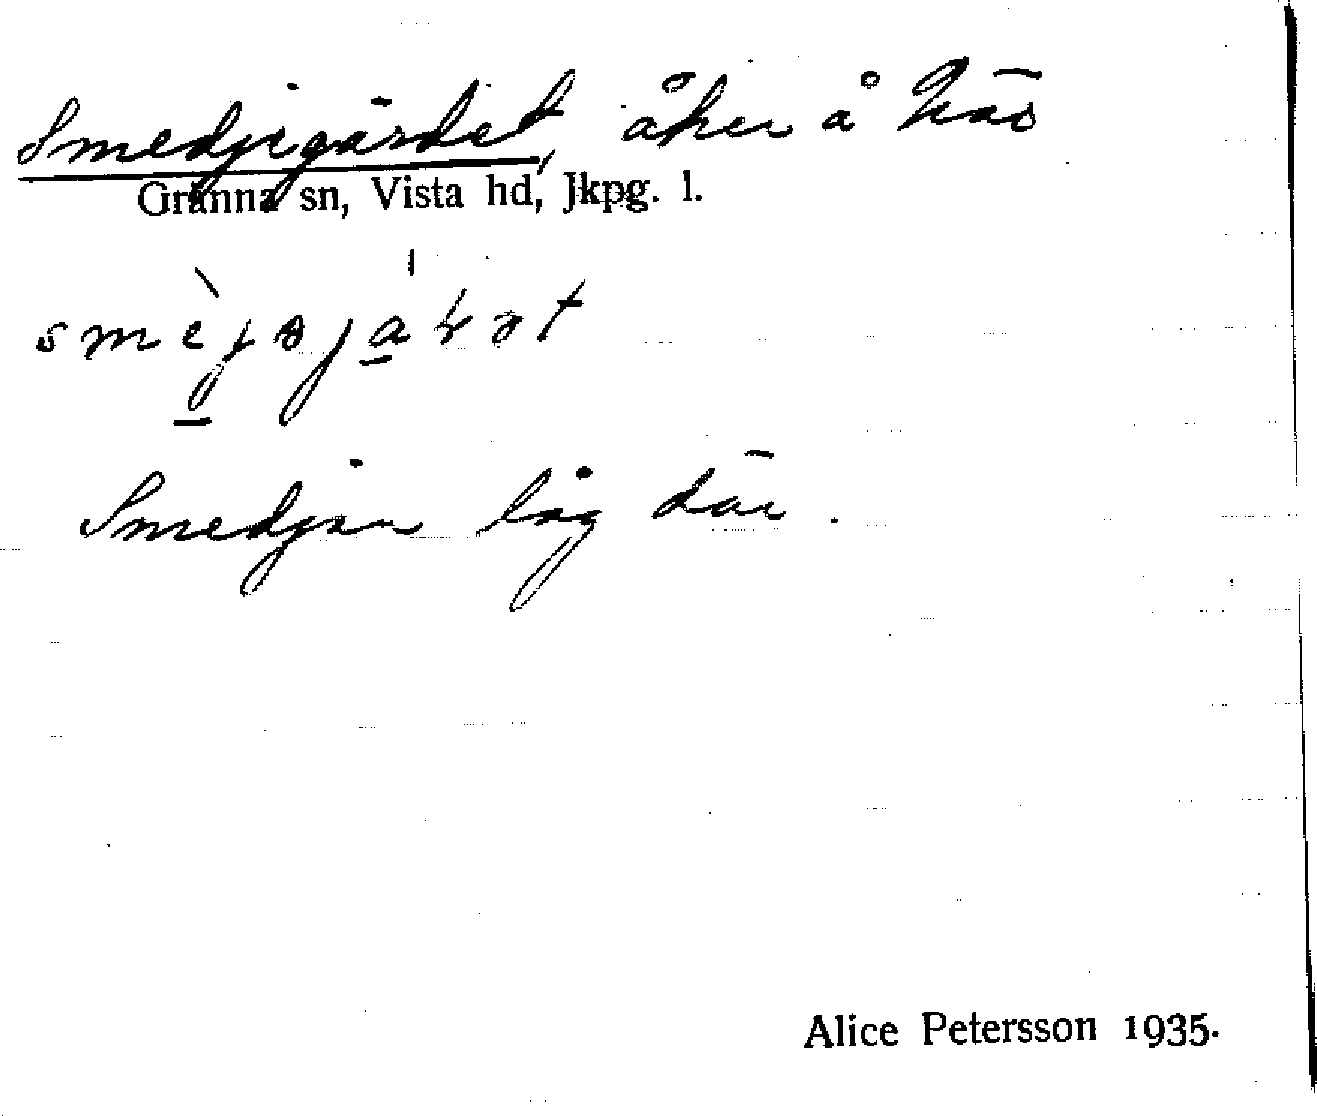 Smedjegärdet, åker å Näs
Gränna sn, Vista hd, Jkpg. l.
Smedjan låg där.
Alice Petersson 1935.